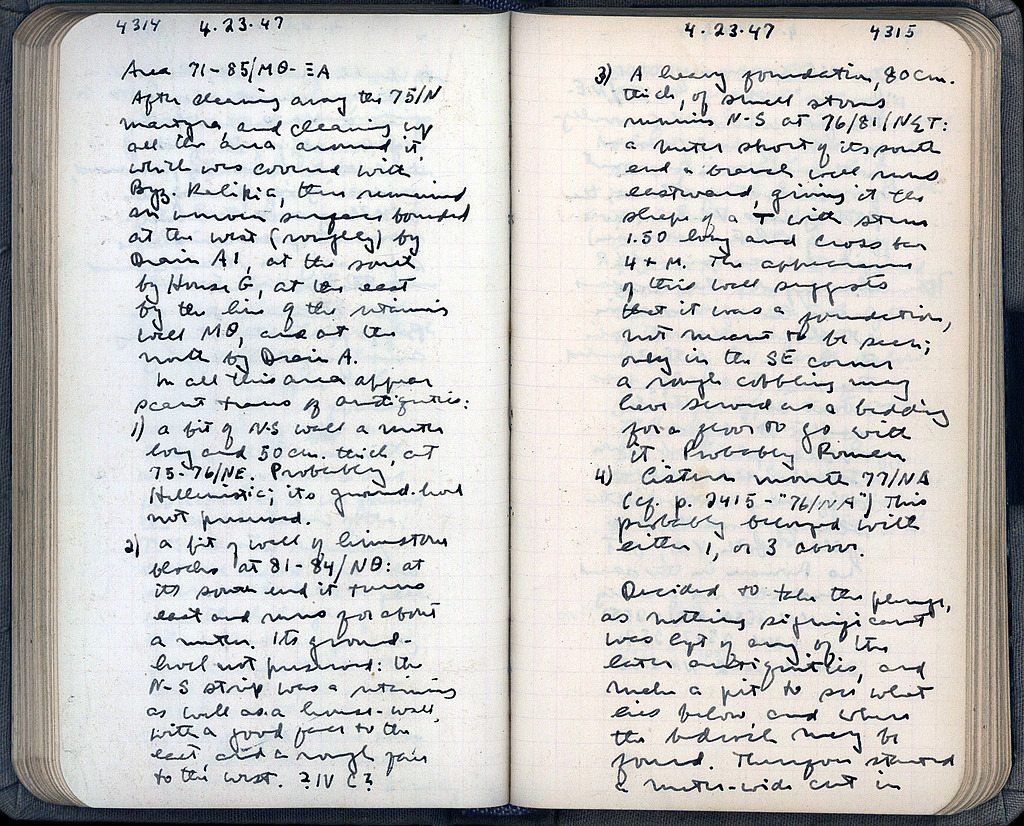 4314 4.23.47
Area 71-85/ΜΘ-ΞΑ
After clearing away the 75/N
martyra, and cleaning up
all the area around it,
which was covered with
Byz Kalikia, there remained
an uneven surface bounded
at the west (roughly) by
Drain A1, at the south
by House G, at the east
by the line of the retaining
wall ΜΘ, and at the
north by Drain A.
In all this area appear
scant traces of antiquities:
1) a bit of N-S wall a meter
long and 50 cm. thick, at
75-76/ΝΕ. Probably
Hellenistic; its ground-level
not preserved.
2) a bit of wall of limestone
blocks at 81-84/ΝΘ: at
its south end it turns
east and runs for about
a meter. Its ground-
level not preserved: the
N-S strip was a retaining
as well as a house-wall,
with a good face to the
east, and a rough face
to the west. ?IV C?
4.23.47 4315
3) A heavy foundation, 80 cm.
thick, of small stones
remains N-S at 76/81/
a meter short of its south
end a branch wall runs
eastward, giving it the
shape of a T with stem
1.50 long and cross bar
4+ M. The appearance
of this wall suggests
that it was a foundation,
not meant to be seen;
only in the SE corner
a rough cobbling may
have served as a bedding
for a floor to go with
it. Probably Roman
4) Cistern mouth 77/ΝΑ
(cf. p. 2415 - "76/ΝΑ") This
probably belonged with
either 1, or 3 above.
Decided to take the plunge,
as nothing significant
was left of any of the
later antiquities, and
make a pit to see what
lies below, and where
the bedrock may be
found. Therefore started
a meter-wide cut in